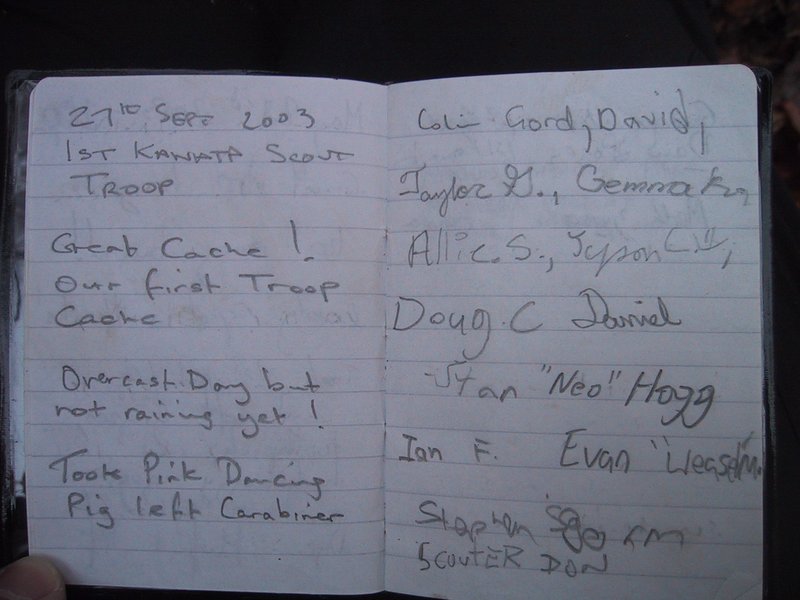 27th Sept 2003
1st Kanata Scout
Troop
Great Cache!
Our first Troop
Cache
Overcast Day but
not raining yet!
Took Pink Dancing
Pig left Carabiner
Colin Gord, David,
Taylor G., Gemma
Allie. S., Tyson
Doug. C Daniel
"Neo" Hogg
Ian F. Evan
Stephen
SCOUTER DON